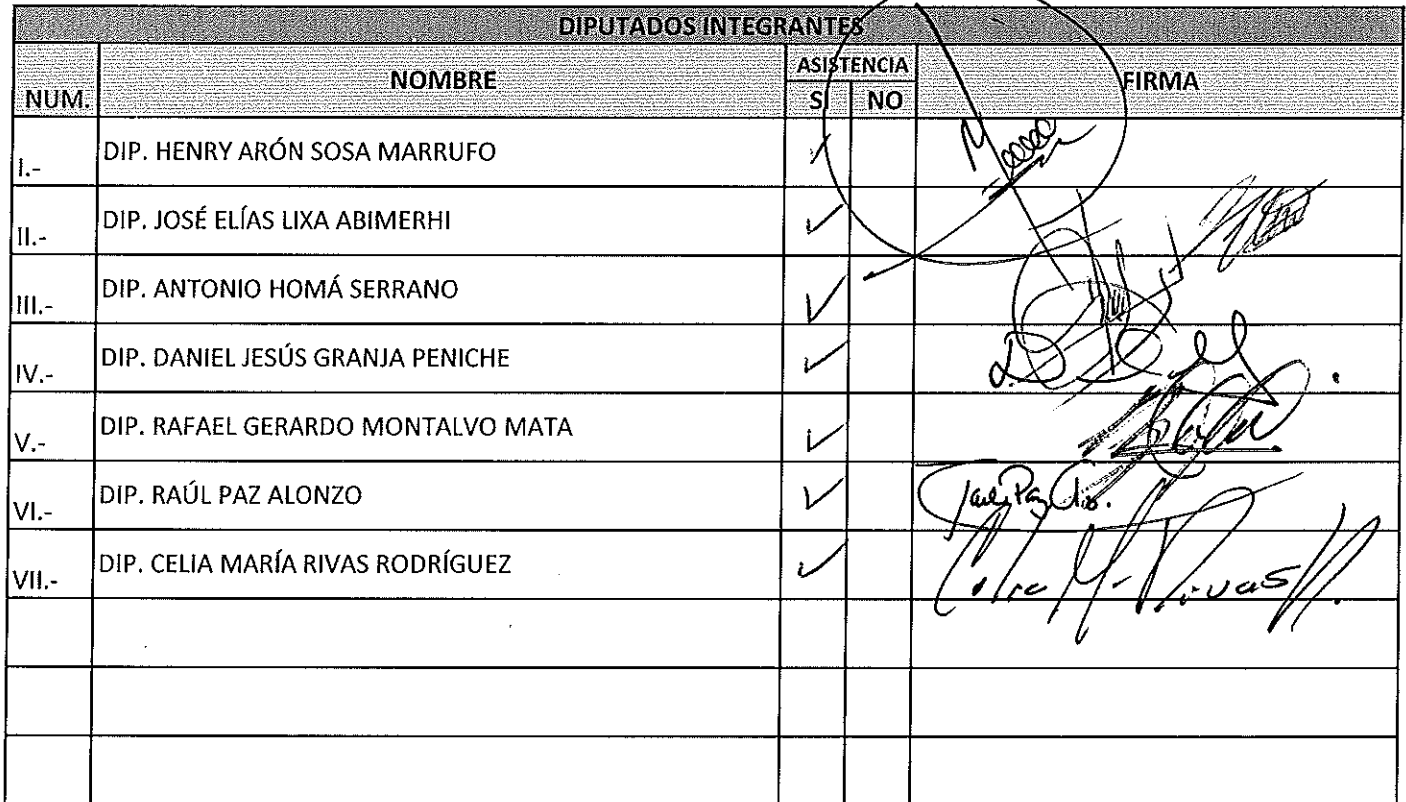 DIPUTADOS INTEGRANTES
NUM. NOMBRE ASISTENCIA FIRMA
SI NO
I.- DIP. HENRY ARÓN SOSA MARRUFO ✓
II.- DIP. JOSÉ ELÍAS LIXA ABIMERHI ✓
III.- DIP. ANTONIO HOMÁ SERRANO ✓
IV.- DIP. DANIEL JESÚS GRANJA PENICHE ✓
V.- DIP. RAFAEL GERARDO MONTALVO MATA ✓
VI.- DIP. RAÚL PAZ ALONZO ✓
VII.- DIP. CELIA MARÍA RIVAS RODRÍGUEZ ✓ Celia M. Rivas R.